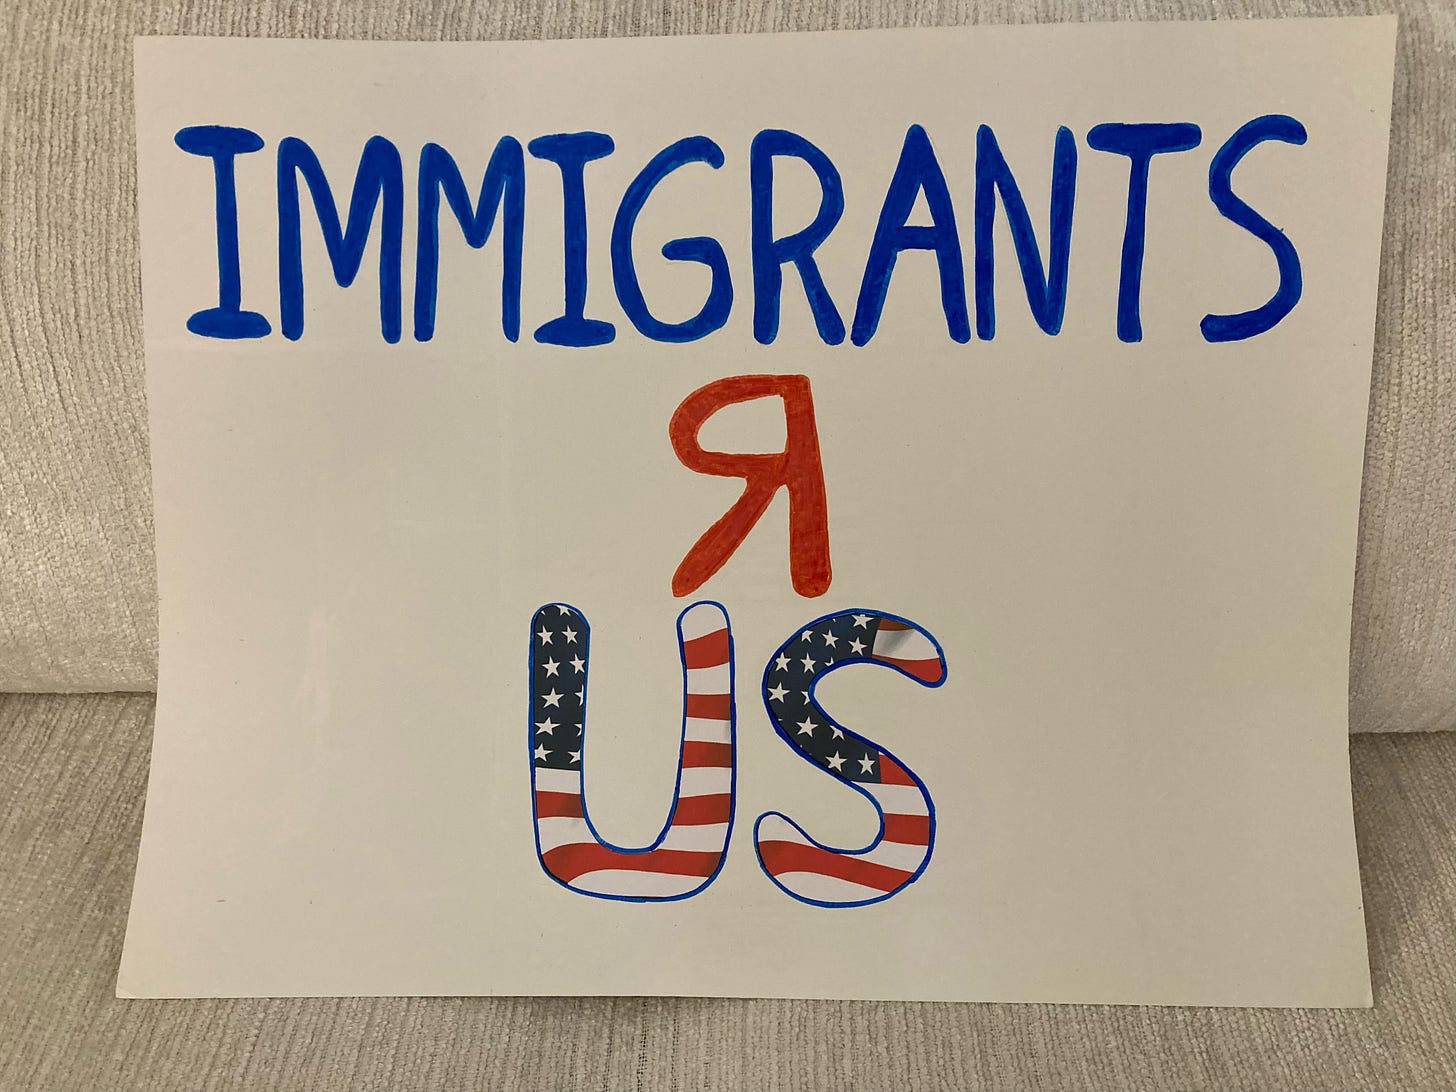 IMMIGRANTS
Я
US